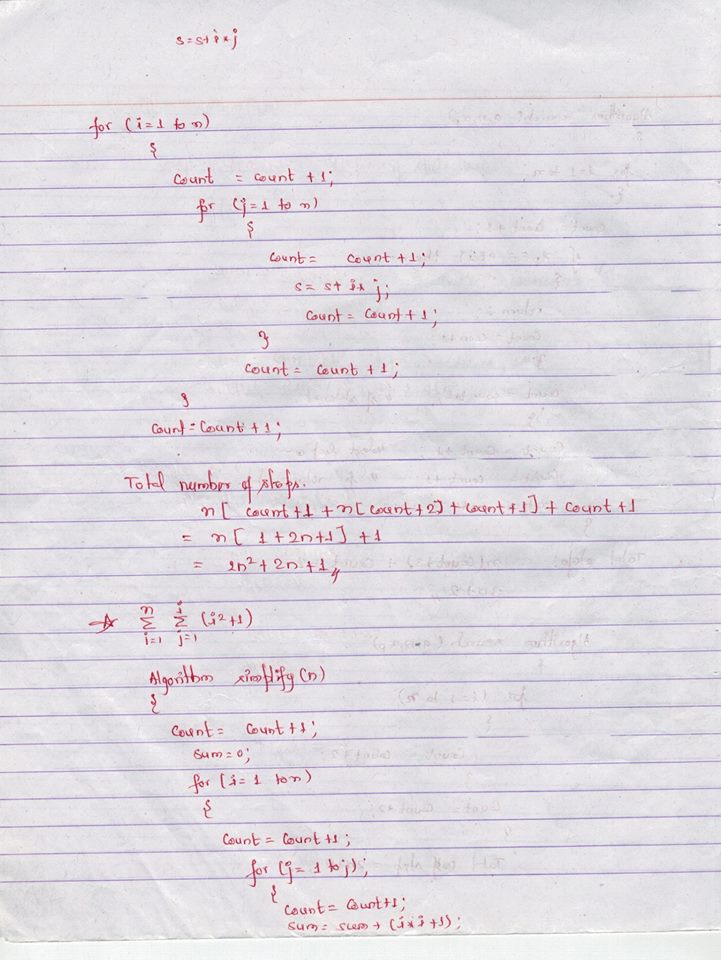 s=s+i*j
for (i=1 to n)
{
count = count +1;
for (j=1 to n)
{
count = count +1;
s= s+ i* j;
count = count +1;
}
count = count +1;
}
count = count +1;
Total number of steps.
n[ count+1 + n[count+2] + count+1] + count+1
= n[ 1+2n+1] +1
= 2n²+2n+1,,
☆ n∑i=1 i∑j=1 (i²+1)
Algorithm simplify(n)
{
count= count+1;
sum=0;
for (i= 1 to n)
{
count = count+1;
for (j= 1 to j);
{
count = count+1;
sum= sum+ (i*i+1);